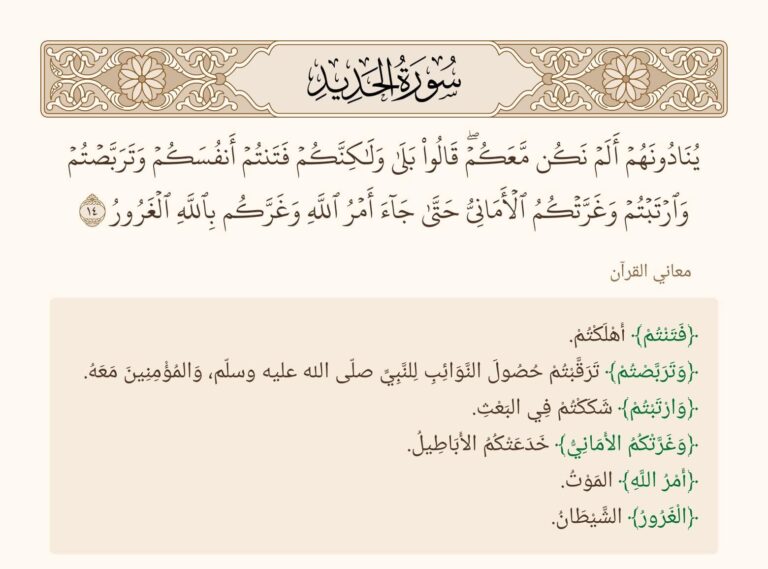 سُورَةُ الحَدِيدِ
يُنَادُونَهُمْ أَلَمْ نَكُن مَّعَكُمْ ۖ قَالُوا۟ بَلَىٰ وَلَـٰكِنَّكُمْ فَتَنتُمْ أَنفُسَكُمْ وَتَرَبَّصْتُمْ
وَٱرْتَبْتُمْ وَغَرَّتْكُمُ ٱلْأَمَانِىُّ حَتَّىٰ جَآءَ أَمْرُ ٱللَّهِ وَغَرَّكُم بِٱللَّهِ ٱلْغَرُورُ ١٤
معاني القرآن
﴿فَتَنْتُمْ﴾ أَهْلَكْتُمْ.
﴿وَتَرَبَّصْتُمْ﴾ تَرَقَّبْتُمْ حُصُولَ النَّوَائِبِ لِلنَّبِيِّ صلّى الله عليه وسلّم، وَالمُؤْمِنِينَ مَعَهُ.
﴿وَارْتَبْتُمْ﴾ شَكَكْتُمْ فِي البَعْثِ.
﴿وَغَرَّتْكُمُ الأَمَانِيُّ﴾ خَدَعَتْكُمُ الأَبَاطِيلُ.
﴿أَمْرُ اللَّهِ﴾ المَوْتُ.
﴿الْغَرُورُ﴾ الشَّيْطَانُ.